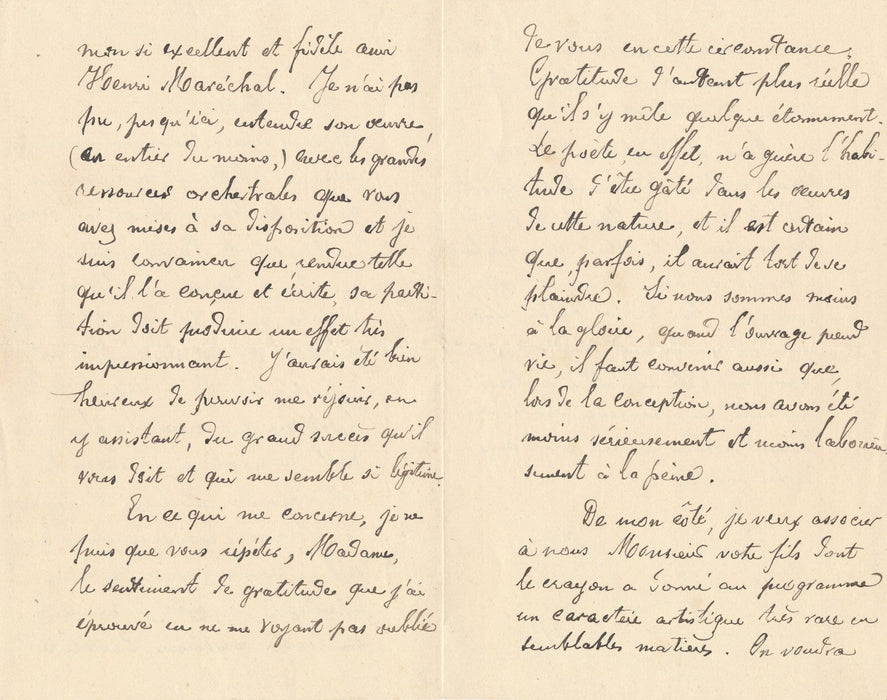 mon si excellent et fidèle ami
Henri Maréchal. Je n'ai pas
pu, jusqu'ici, entendre son œuvre,
(en entier du moins,) avec les grandes
ressources orchestrales que vous
avez mises à sa disposition et je
suis convaincu que rendue telle
qu'il l'a conçue et écrite, sa parti-
tion doit produire un effet très
impressionnant. J'aurais été bien
heureux de pouvoir me réjouir, en
y assistant, du grand succès qu'il
vous doit et qui me semble si légitime.
En ce qui me concerne, je ne
puis que vous répéter, Madame,
le sentiment de gratitude que j'ai
éprouvé en ne me voyant pas oublié
de vous en cette circonstance.
Gratitude d'autant plus réelle
qu'il s'y mêle quelque étonnement.
Le poète, en effet, n'a guère l'habi-
tude d'être gâté dans les œuvres
de cette nature, et il est certain
que, parfois, il aurait tort de se
plaindre. Si nous sommes moins
à la gloire, quand l'ouvrage prend
vie, il faut convenir aussi que,
lors de la conception, nous avons été
moins sérieusement et moins laborieu
sement à la peine.
De mon côté, je veux associer
à nous Monsieur votre fils dont
le crayon a donné au programme
un caractère artistique très rare en
semblables matières. On voudra